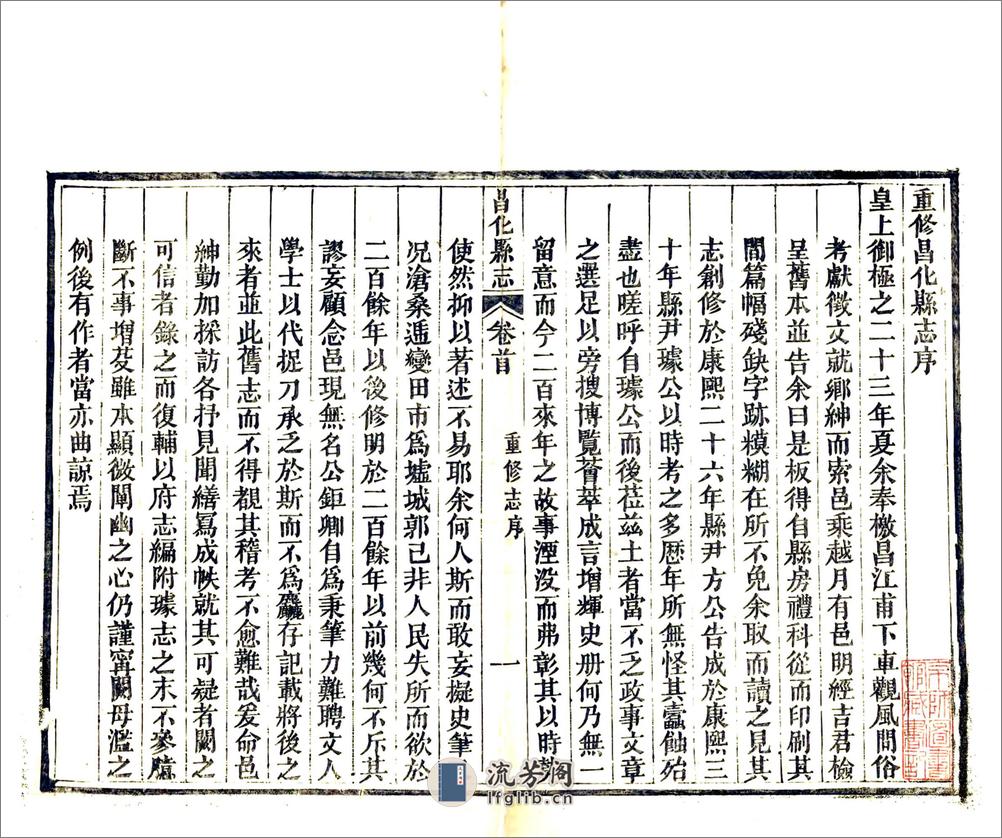 重修昌化縣志序
皇上御極之二十三年夏余奉檄昌江甫下車觀風問俗
考獻徵文就鄉紳而索邑乘越月有邑明經吉君檢
呈舊本並告余曰是板得自縣房禮科從而印刷其
間篇幅殘缺字跡糢糊在所不免余取而讀之見其
志創修於康熙二十六年縣尹方公告成於康熙三
十年縣尹璩公以時考之多歷年所無怪其蠹蝕殆
盡也嗟呼自璩公而後莅茲土者當不乏政事文章
之選足以旁搜博覽薈萃成言增輝史册何乃無一
留意而今二百來年之故事湮没而弗彰其以時勢
昌化縣志
卷首
重修志序
一
使然抑以著述不易耶余何人斯而敢妄擬史筆
况滄桑遞變田市爲墟城郭已非人民失所而欲於
二百餘年以後修明於二百餘年以前幾何不斥其
謬妄顧念邑現無名公鉅卿自爲秉筆力難聘文人
學士以代捉刀承乏於斯而不爲麤存記載將後之
來者並此舊志而不得覩其稽考不愈難哉爰命邑
紳勤加採訪各抒見聞繕冩成帙就其可疑者闕之
可信者錄之而復輔以府志編附璩志之末不參臆
斷不事增芟雖本顯微闡幽之心仍謹甯闕毋濫之
例後有作者當亦曲諒焉
流芳阁
lfglib.cn